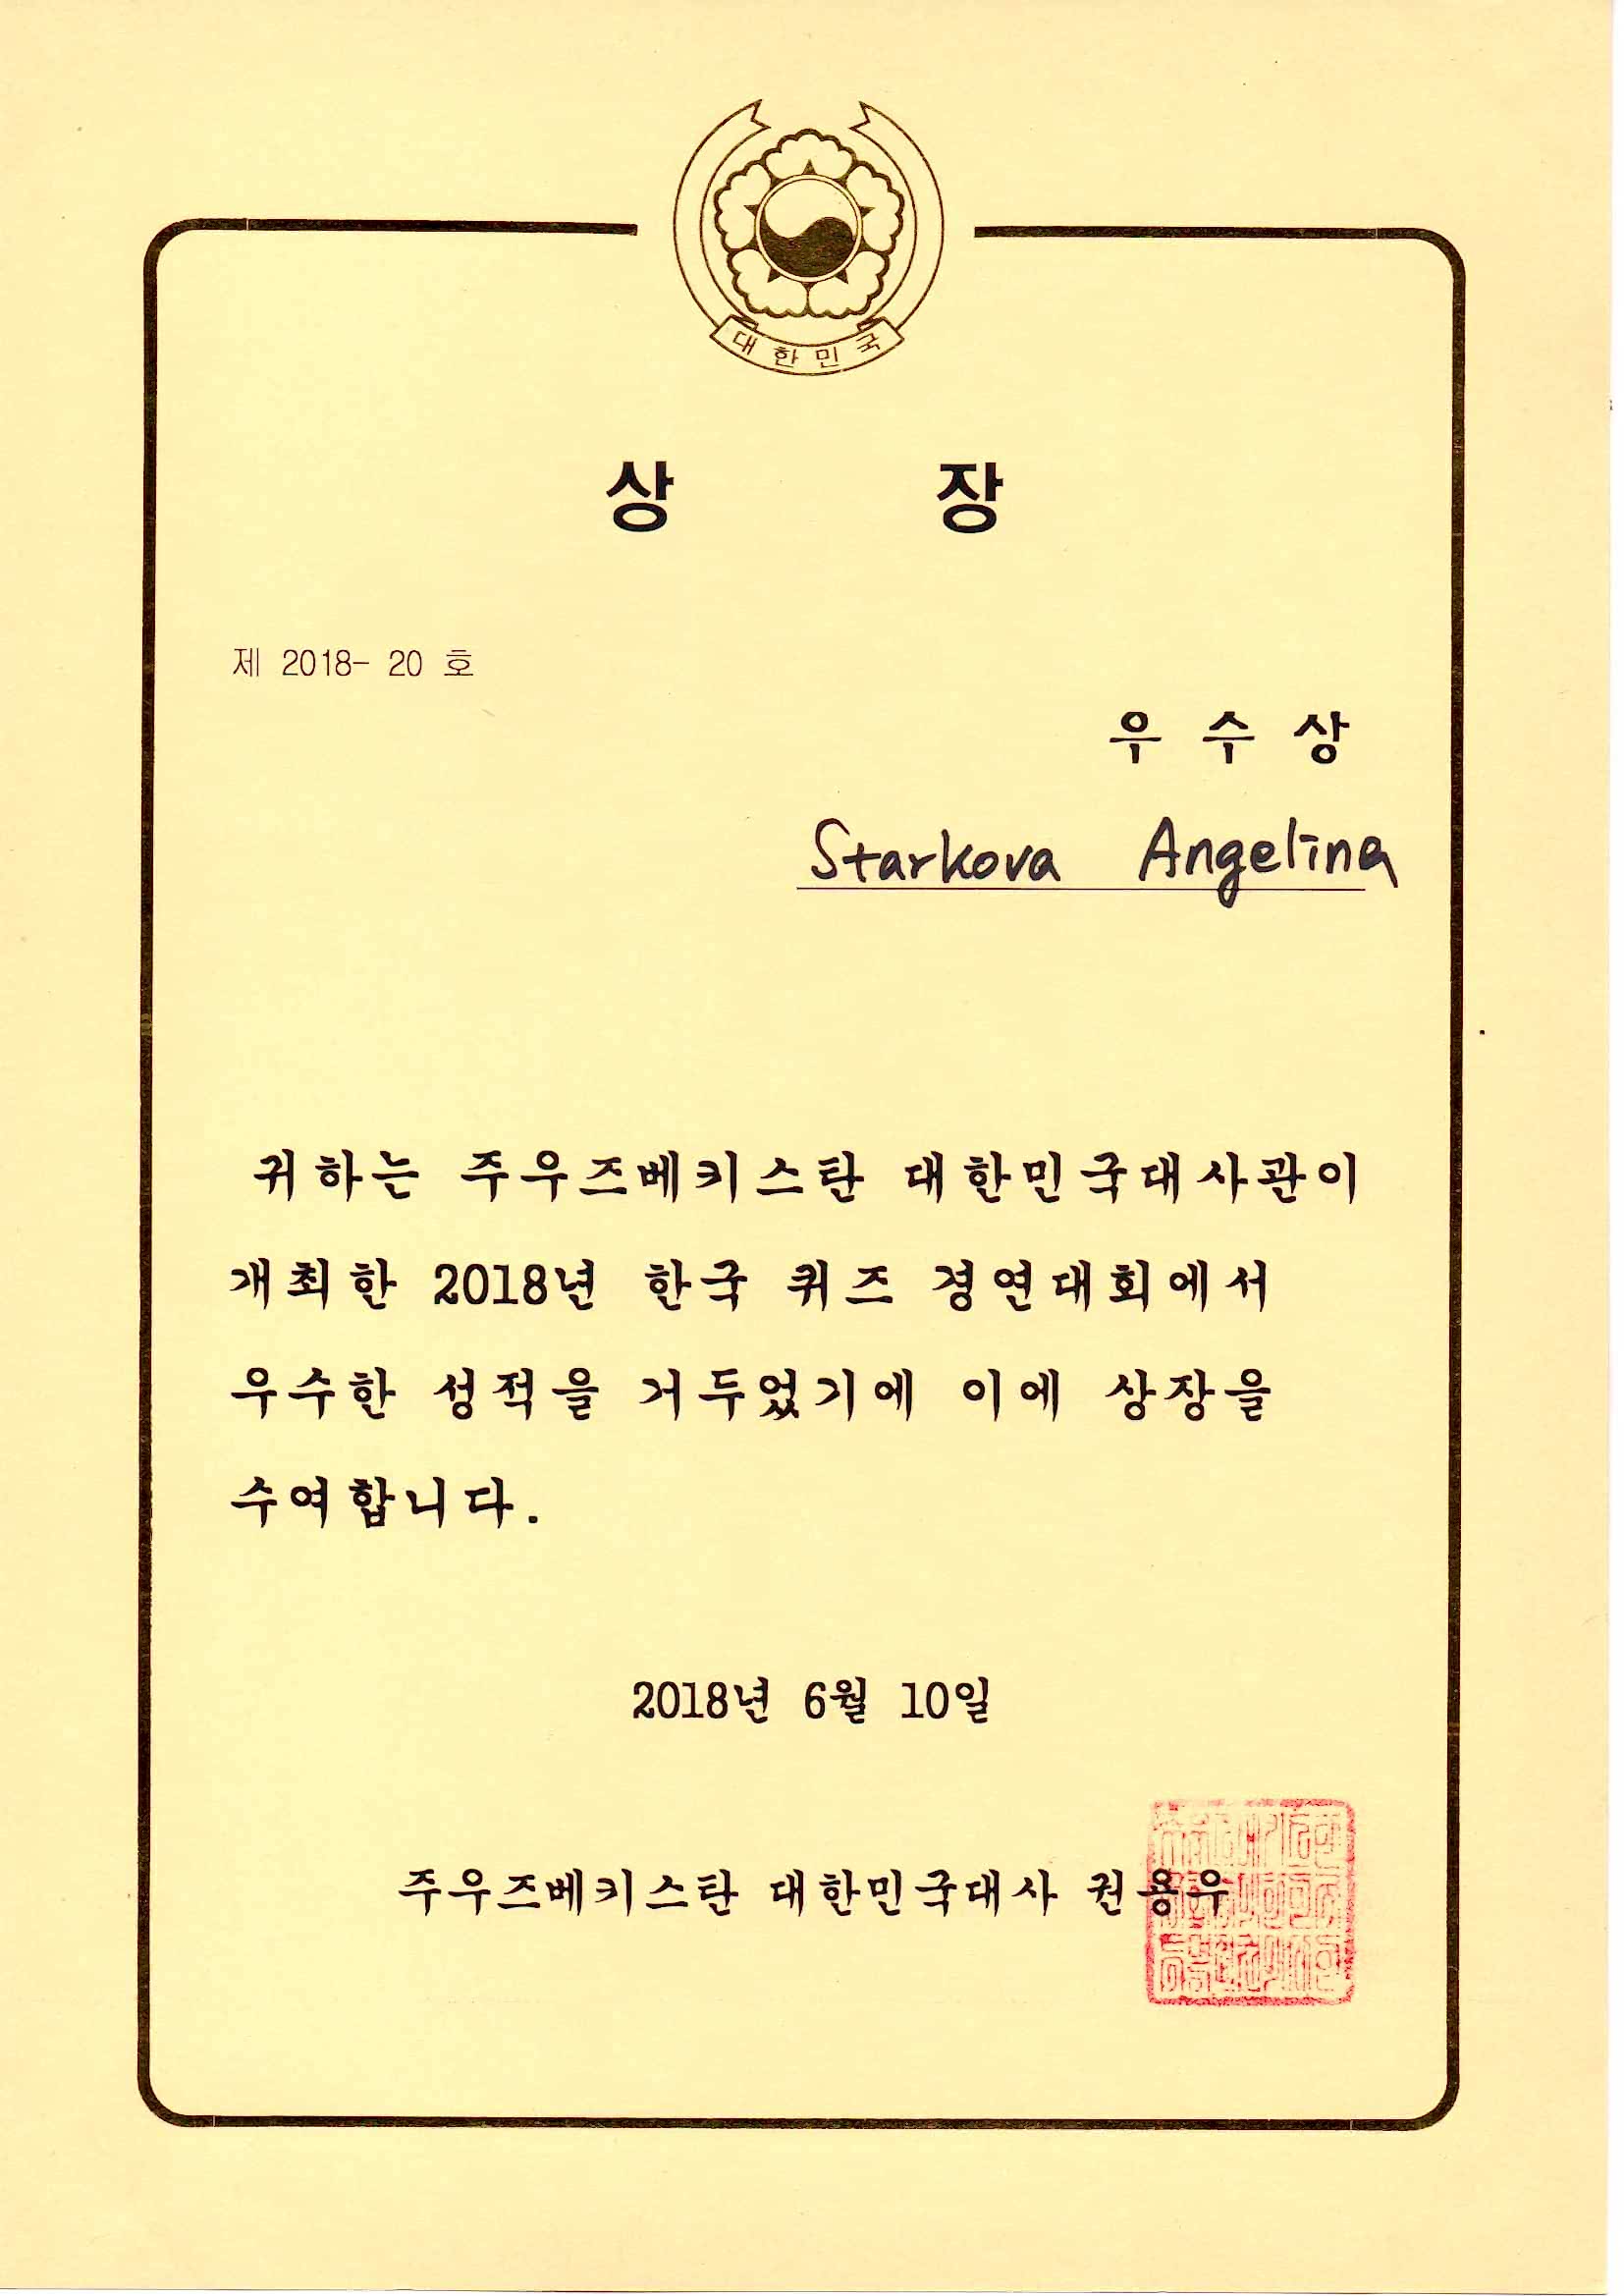 대한민국
상 장
제 2018- 20 호
우 수 상
Starkova Angelina
귀하는 주우즈베키스탄 대한민국대사관이
개최한 2018년 한국 퀴즈 경연대회에서
우수한 성적을 거두었기에 이에 상장을
수여합니다.
2018년 6월 10일
주우즈베키스탄 대한민국대사 권용우